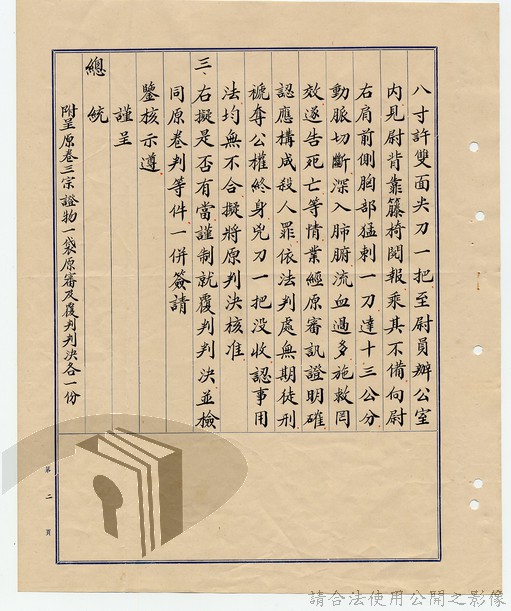 八寸許雙面尖刀一把至尉員辦公室
內見尉背靠籐椅閱報乘其不備向尉
右肩前側胸部猛刺一刀達十三公分
動脈切斷深入肺腑流血過多施救罔
效遂告死亡等情業經原審訊證明確
認應構成殺人罪依法判處無期徒刑
褫奪公權終身兇刀一把没收認事用
法均無不合擬將原判決核准
三、右擬是否有當謹制就覆判判決並檢
同原卷判等件一併簽請
鑒核示遵
謹呈
總統
附呈原卷三宗證物一袋原審及覆判判決各一份
第二頁
請合法使用公開之影像